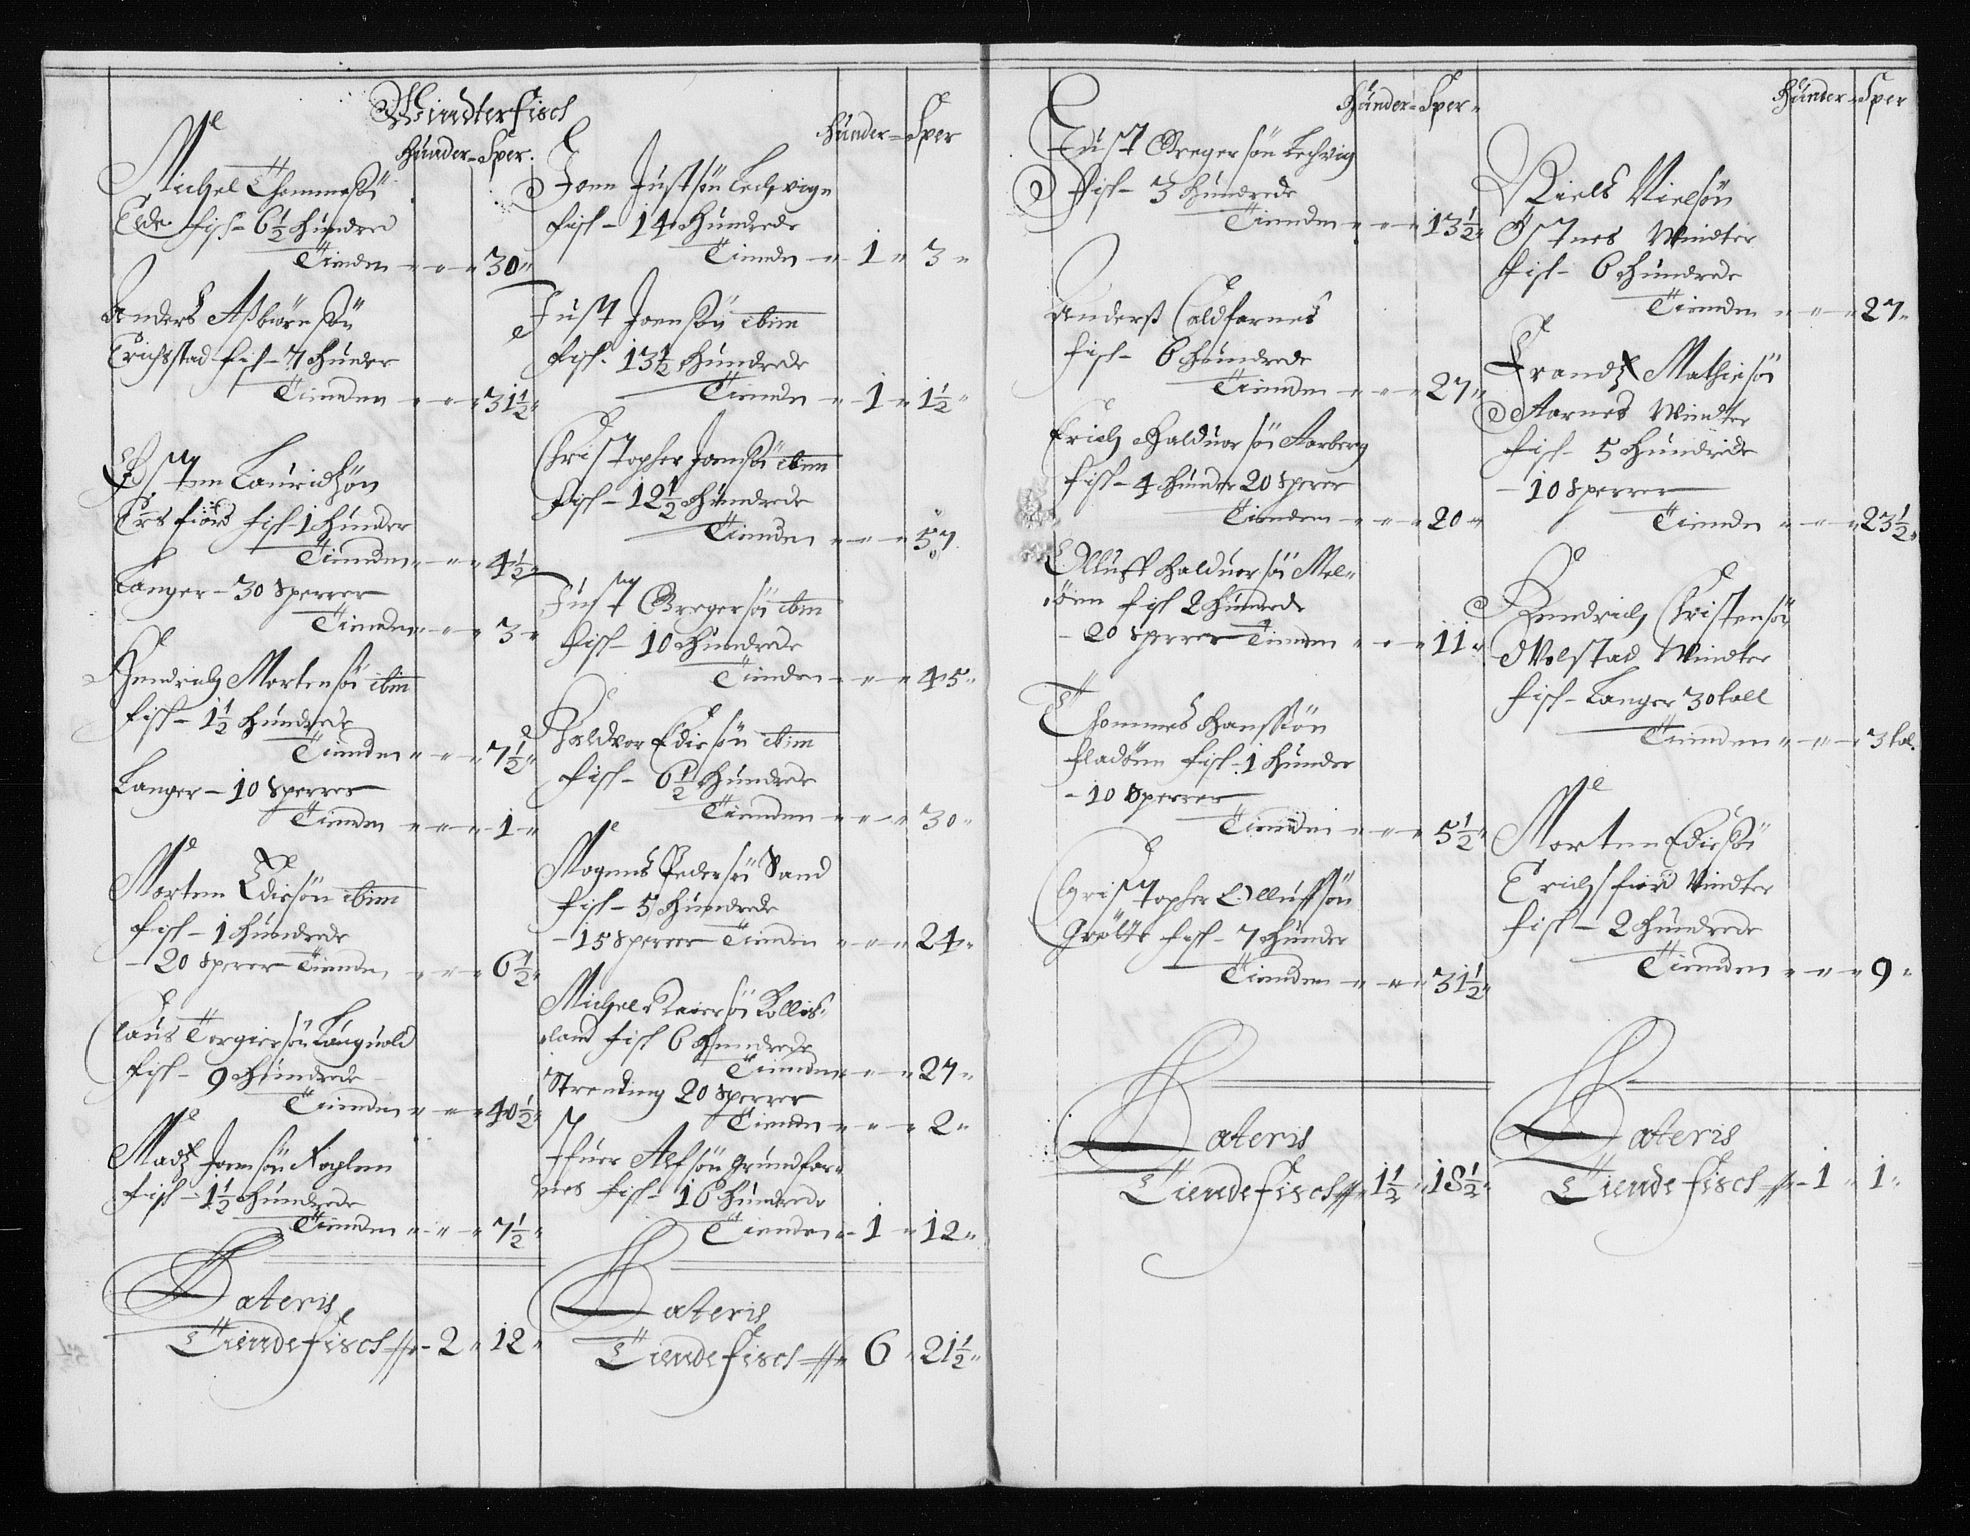 Windterfisch
Hünder - Sper.
Michel Thommesön
Elde fisch - 6½ hündred
Tienden - - - 30
Anders Aßbiörnsön
Erichstad fisch - 7 hünder
Tienden - - - 31½
Östen Lauridsön
fiord fisch - 1 hünder
Tienden - - - 4½
Langer - 30 Sperrer
Tienden - - - 3
Hendrich Mortensön ibm
fisch - 1½ hündrede
Tienden - - - 7½
Langer - 10 Sperrer
Tienden - - - 1
Morten Ediesön ibm
fisch - 1 hündrede
- 20 Sperer Tienden - - - 6½
Claus Torgiersön Langvold
fisch - 9 hündrede
Tienden - - - 40½
Madz Joensön Foglem
fisch - 1½ hündrede
Tienden - - - 7½
Lateris
Tiende fisch - 2 - 12
Hünder - Sper
Joen Justsön Lechvign
fisch - 14 hündrede
Tienden - 1 - 3
Just Joensön ibm
fisch - 13½ hündrede
Tienden - 1 - 1½
Christopher Joensön ibm
fisch - 12½ hündrede
Tienden - - - 57
Just Gregersön ibm
fisch - 10 hündrede
Tienden - - - 45
Haldvor Ediesön ibm
fisch - 6½ hündrede
Tienden - - - 30
Mogens Pedersön Sand
fisch - 5 hündrede
- 15 Sperrer Tienden - - - 24
Michel Reiersön Rolles-
land fisch 6 hündrede
Tienden - - - 27
Strending 20 Sperrer
Tienden - - - 2
Ifuer Alfsön Grundfar-
nes fisch - 16 hündrede
Tienden - 1 - 12
Lateris
Tiende fisch - 6 - 21½
Hünder - Sper -
Just Gregersön Lechvig
fisch - 3 hündrede
Tienden - - - 13½
Anderß Caldfarnes
fisch - 6 hündrede
Tienden - - - 27
Erich Halduorsön Aarberg
fisch - 4 hünder 20 Sperer
Tienden - - - 20
Olluff Halduorsön Mel-
öen fisch 2 hündrede
- 20 Sperrer Tienden - - - 11
Thommes Hanssön
fladöen fisch - 1 hünder
- 10 Sperrer
Tienden - - - 5½
Christopher Olluffsön
Gröttе fisch - 7 hünder
Tienden - - - 31½
Lateris
Tiende fisch - 1½ - 18½
Hünder - Sper
Niels Nielsön
Östnes Windter
fisch - 6 hündrede
Tienden - - - 27
Frandz Mathiesön
Aarnes Windter
fisch - 5 hündrede
- 10 Sperrer
Tienden - - - 23½
Hendrich Christensön
Wolstad Windter
fisch - Langer 30 tall
Tienden - - - 3 tal.
Morten Ediesön
Erichsfiord Vindter
fisch - 2 hündrede
Tienden - - - 9
Lateris
Tiende fisch - 1 - 1